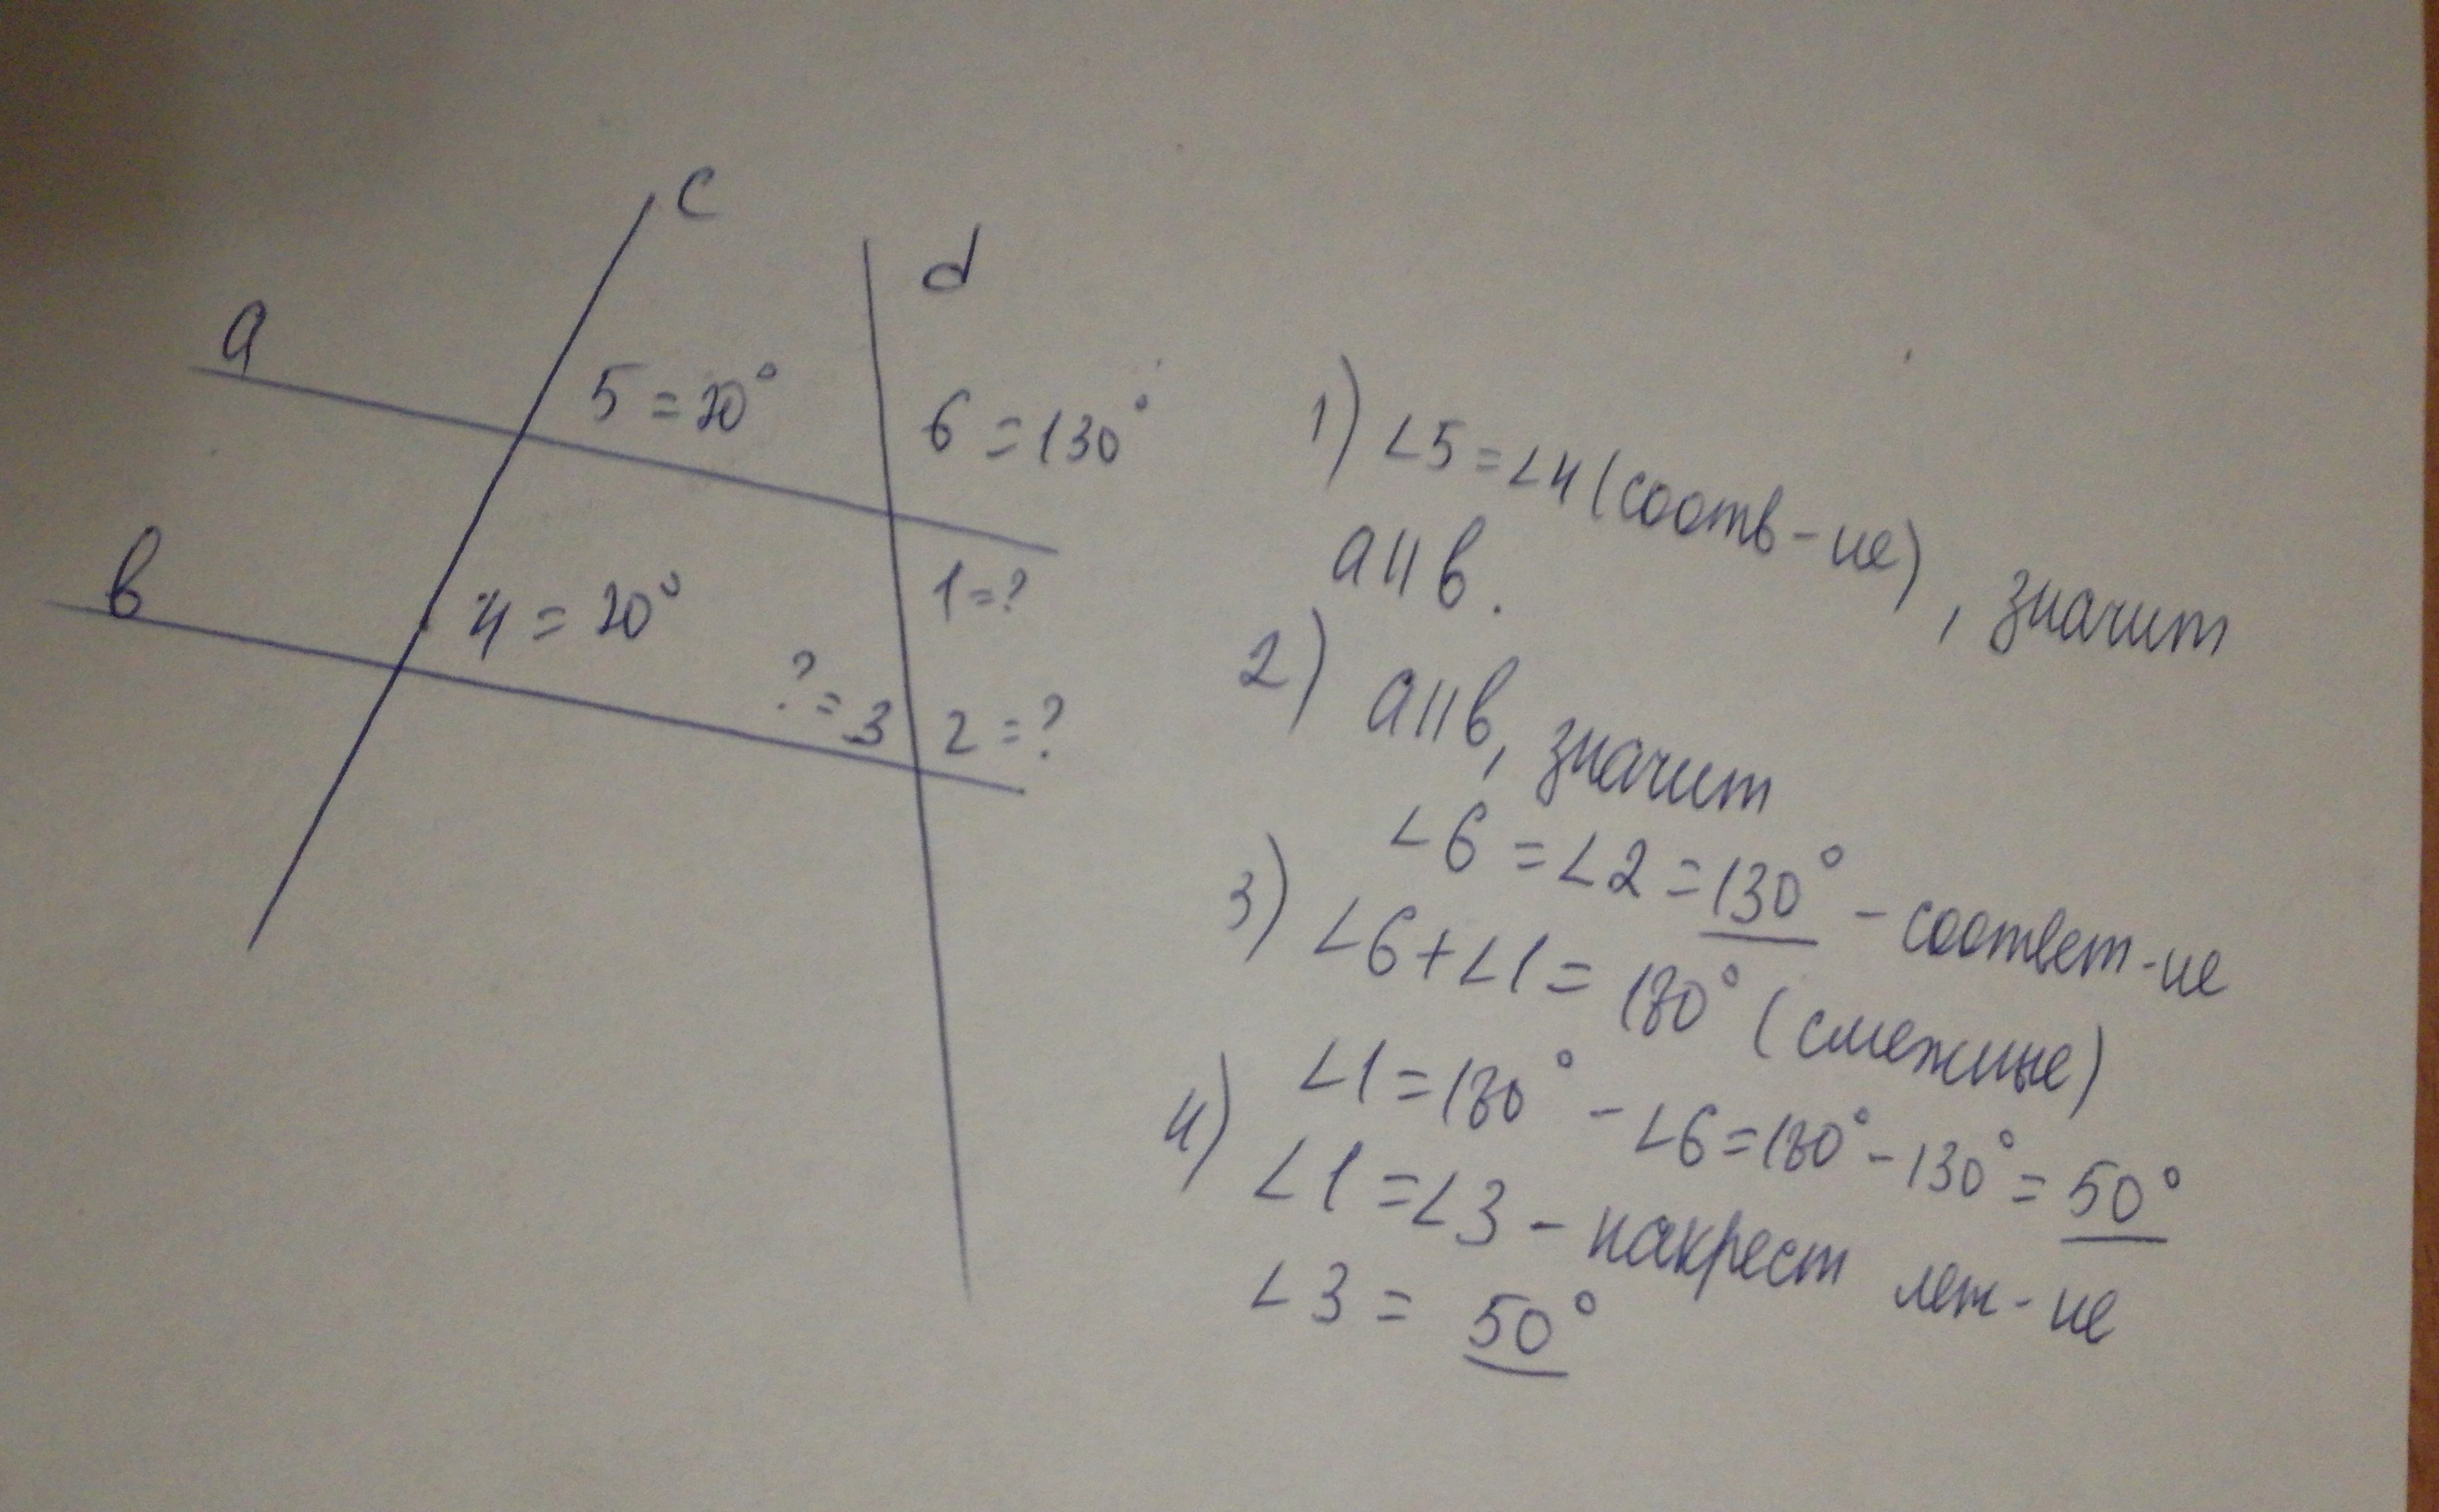 c
d
a
5 = 20°
6 = 130°
в
4 = 20°
1 = ?
? = 3
2 = ?
1) ∠5 = ∠4 (соотв-ие), значит
a || в.
2) a || в, значит
∠6 = ∠2 = 130° - соответ-ие
3) ∠6 + ∠1 = 180° (смежные)
∠1 = 180° - ∠6 = 180° - 130° = 50°
4) ∠1 = ∠3 - накрест леж-ие
∠3 = 50°